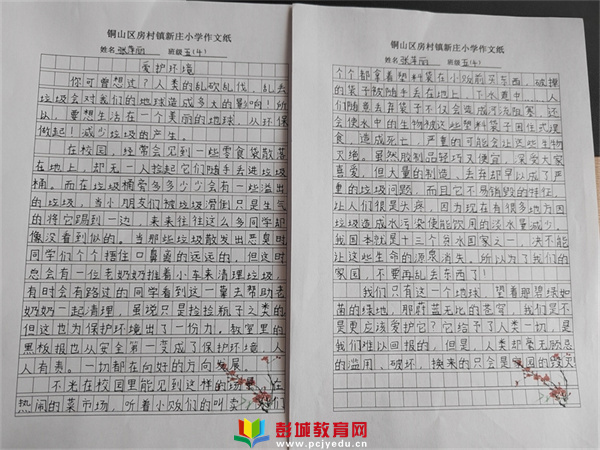 铜山区房村镇新庄小学作文纸
姓名 张萍丽 班级 五(4)
爱护环境
你可曾想过？人类的乱砍乱伐、乱丢
垃圾会对我们的地球造成多大的影响！所
以，要想生活在一个美丽的地球，从环保
做起！减少垃圾的产生。
在校园，经常会见到一些零食袋散落
在地上，却无一人捡起它们随手丢进垃圾
桶。而在垃圾桶旁多多少少会有一些溢出
的垃圾，当小朋友们被垃圾滑倒只是生气
的将它踢到一边，来来往往这么多同学却
像没看到似的。当那些垃圾散发出恶臭时
同学们个个捂住口鼻的远远的，但这时
总会有一位老奶奶推着小车来清理垃圾，
有时会有路过的同学看到这一幕去帮助老
奶奶一起清理，虽说只是捡捡瓶子之类的
但这也为保护环境出了一份力。教室里的
黑板报也从安全第一变成了保护环境，人
人有责。一切都在向好的方向发展。
不光在校园里能见到这样的场 在
热闹的菜市场，听着小贩们的叫卖 们
铜山区房村镇新庄小学作文纸
姓名 张萍丽 班级 五(4)
个个都拿着塑料袋在小贩前买东西，破损
的袋子被随手丢在地上、下水道中……人
们随意丢弃袋子不仅会造成河流阻塞，还
会使水中的生物被这些塑料袋子困住或误
食，造成死亡，严重的可能会让这些生物
灭绝。虽然胶制品轻巧又便宜，深受大家
喜爱，但大量的制造、丢弃却早以成了严
重的垃圾问题，而且它不易销毁的特征，
让人们很是头疼，因为现在有很多地方因
垃圾造成水污染使能饮用的淡水量减少，
我国本就是出三个穷水国家之一，决不能
让这些生命的源泉消失。所以为了我们的
家园，不要再乱丢东西了！
我们只有这一个地球，望着那碧绿如
茵的绿地，那蔚蓝无比的苍穹，我们是不
是更应该爱护它？它给予了人类一切，是
我们难以回报的，但是，人类却毫无顾忌
的滥用、破坏，换来的只会是家园的毁灭
彭城教育网
www.pcjyedu.cn